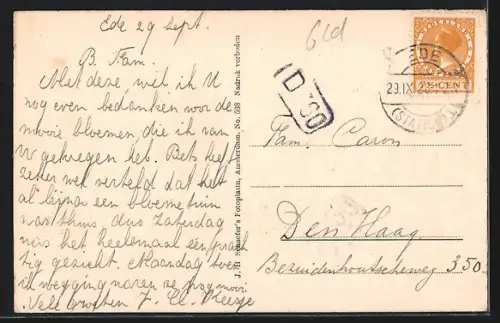 Ede 29 Sept.
B. Fam.
Met deze, wil ik U
nog even bedanken voor de
mooie bloemen, die ik van
U gekregen heb. Bets heeft
zeker wel verteld dat het
al bijna een bloementuin
was thuis dus Zaterdag
was het heelemaal een prach
tig gezicht. Maandag toen
ik wegging waren ze nog mooi
Vele groeten
J. H. Schaefer's Fotoplatin, Amsterdam, No. 538 Nadruk verboden
6Ld
D 30
EDE
29.IX
(STATION)
7½ CENT
Fam. Caron
Den Haag
Bezuidenhoutscheweg 350